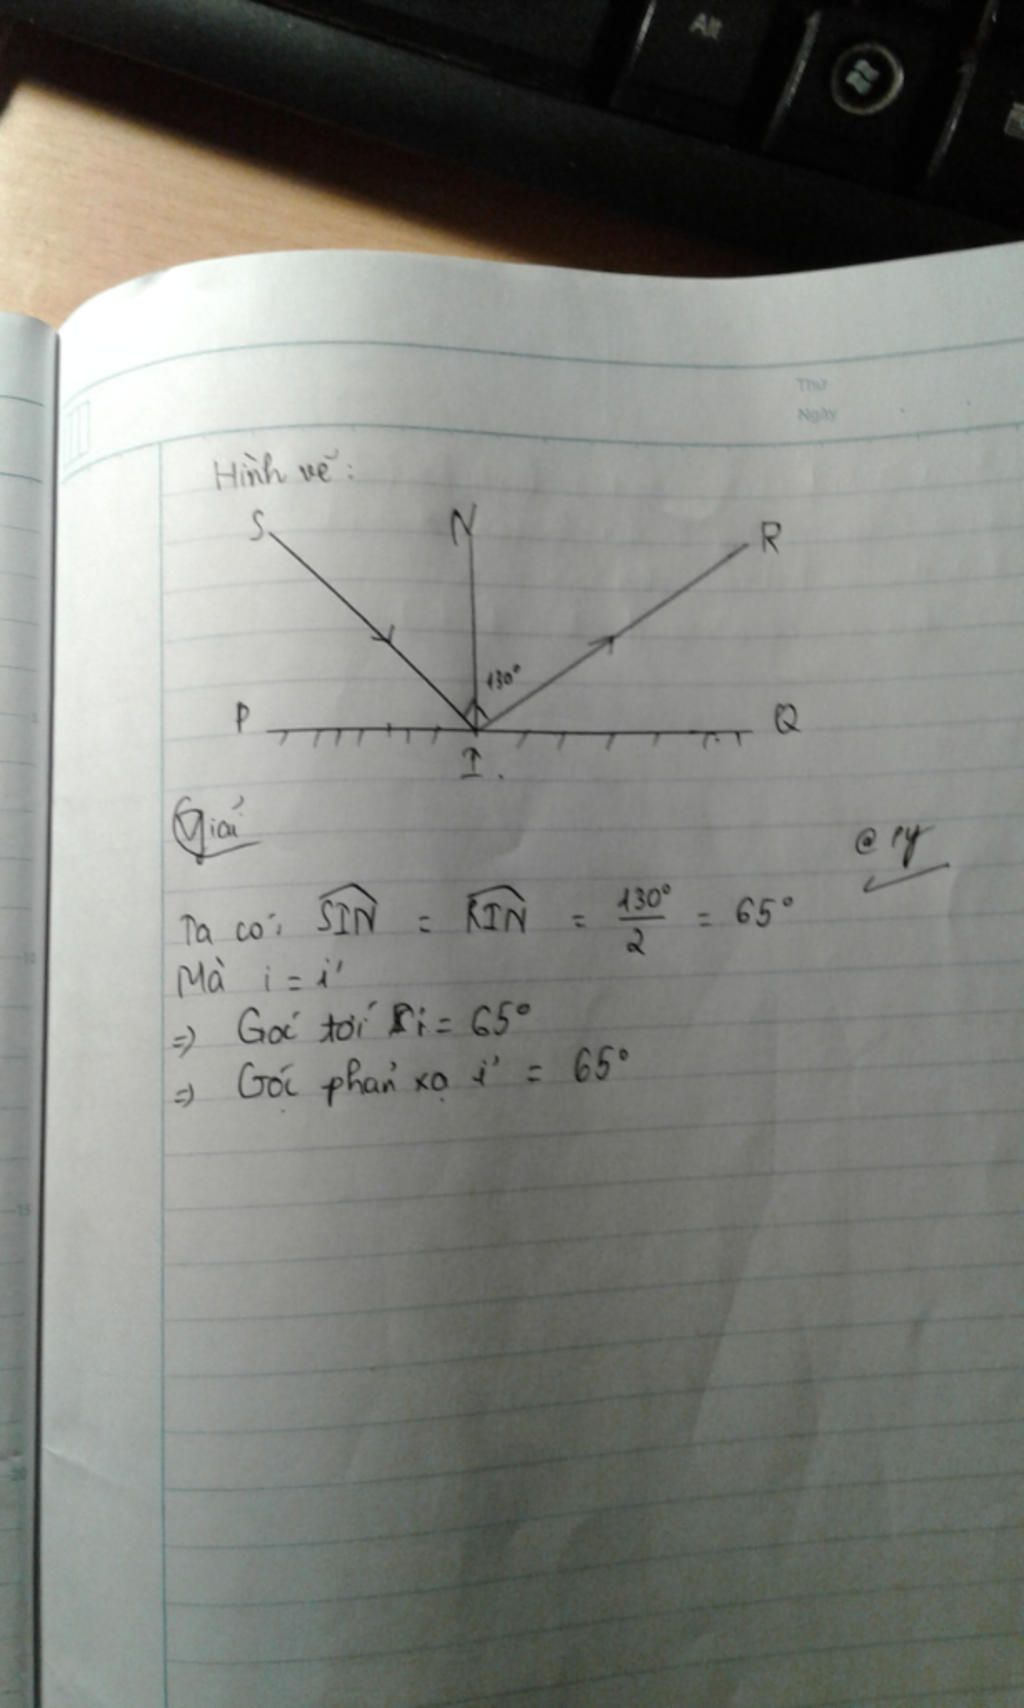 Alt
Thứ
Ngày
Hình vẽ:
S N R
130°
P Q
I.
Giải
@ ly
Ta có: SIN = RIN = 130°/2 = 65°
Mà i = i'
=> Góc tới i = 65°
=> Góc phản xạ i' = 65°